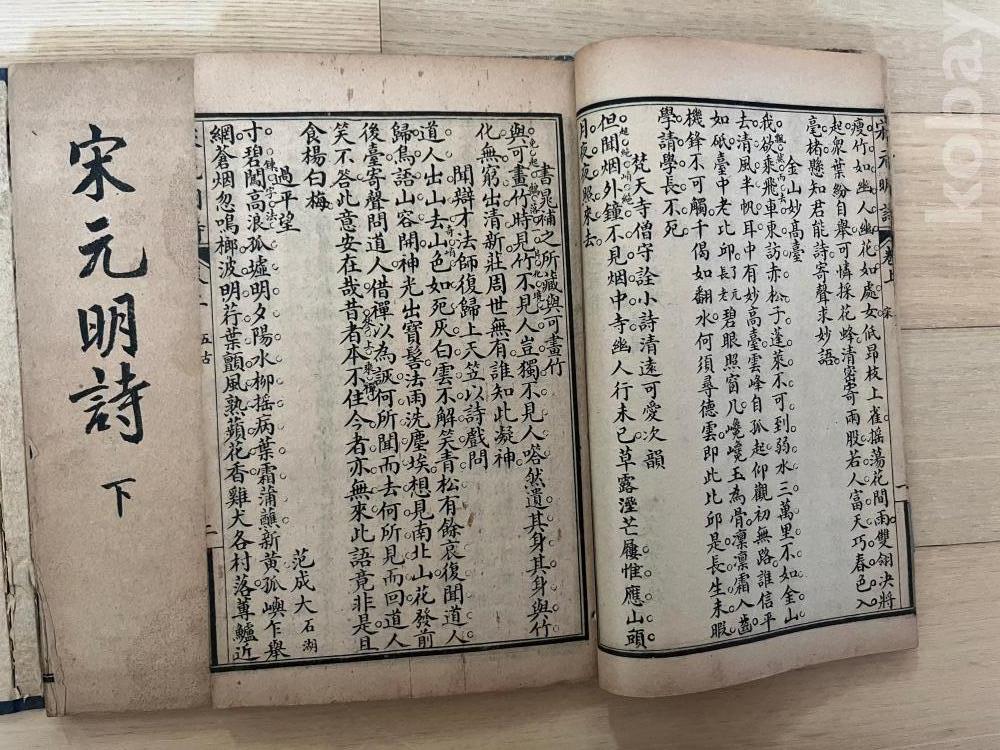 宋元明詩 卷上 宋 一
瘦竹如幽人幽花如處女低昂枝上雀搖蕩花間雨雙翎決將
起眾葉紛自舉可憐採花蜂清蜜寄兩股若人富天巧春色入
毫楮懸知君能詩寄聲求妙語
金山妙高臺
我欲乘飛車東訪赤松子蓬萊不可到弱水三萬里不如金山
去清風半帆耳中有妙高臺雲峰自孤起仰觀初無路誰信平
如砥臺中老比邱了元老碧眼照窗几巉巉玉為骨凜凜霜入齒
機鋒不可觸千偈如翻水何須尋德雲即此比邱是長生未暇
學請學長不死
梵天寺僧守詮小詩清遠可愛次韻
但聞烟外鐘不見烟中寺幽人行未已草露溼芒屨惟應山頭
月夜夜照來去
書晁補之所藏與可畫竹
與可畫竹時見竹不見人豈獨不見人嗒然遺其身其身與竹
化無窮出清新莊周世無有誰知此凝神
聞辯才法師復歸上天竺以詩戲問
道人出山去山色如死灰白雲不解笑青松有餘哀復聞道人
歸鳥語山容開神光出寶髻法雨洗塵埃想見南北山花發前
後臺寄聲問道人借禪以為詼何所聞而去何所見而回道人
笑不答此意安在哉昔者本不住今者亦無來此語竟非是且
食楊白梅
過平望 范成大石湖
寸碧闖高浪孤墟明夕陽水柳搖病葉霜蒲蘸新黃孤嶼乍舉
網蒼烟忽鳴榔波明荇葉顫風熟蘋花香雞犬各村落蓴鱸近
五古
二
宋元明詩 下
kobay